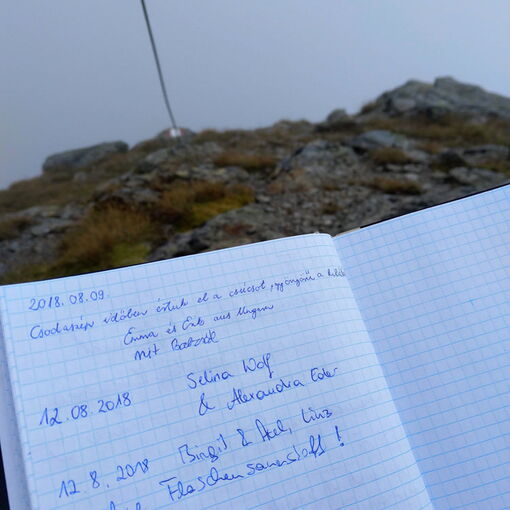 2018.08.09.
Csodaszép időben értük el a csúcsot, gyönyörű a kilátás
Emma és Erik aus Ungarn
mit
12.08.2018 Selina Wolf
& Alexandra Eder
12.8.2018 Birgit & Axel, Linz
Flaschensauerstoff!